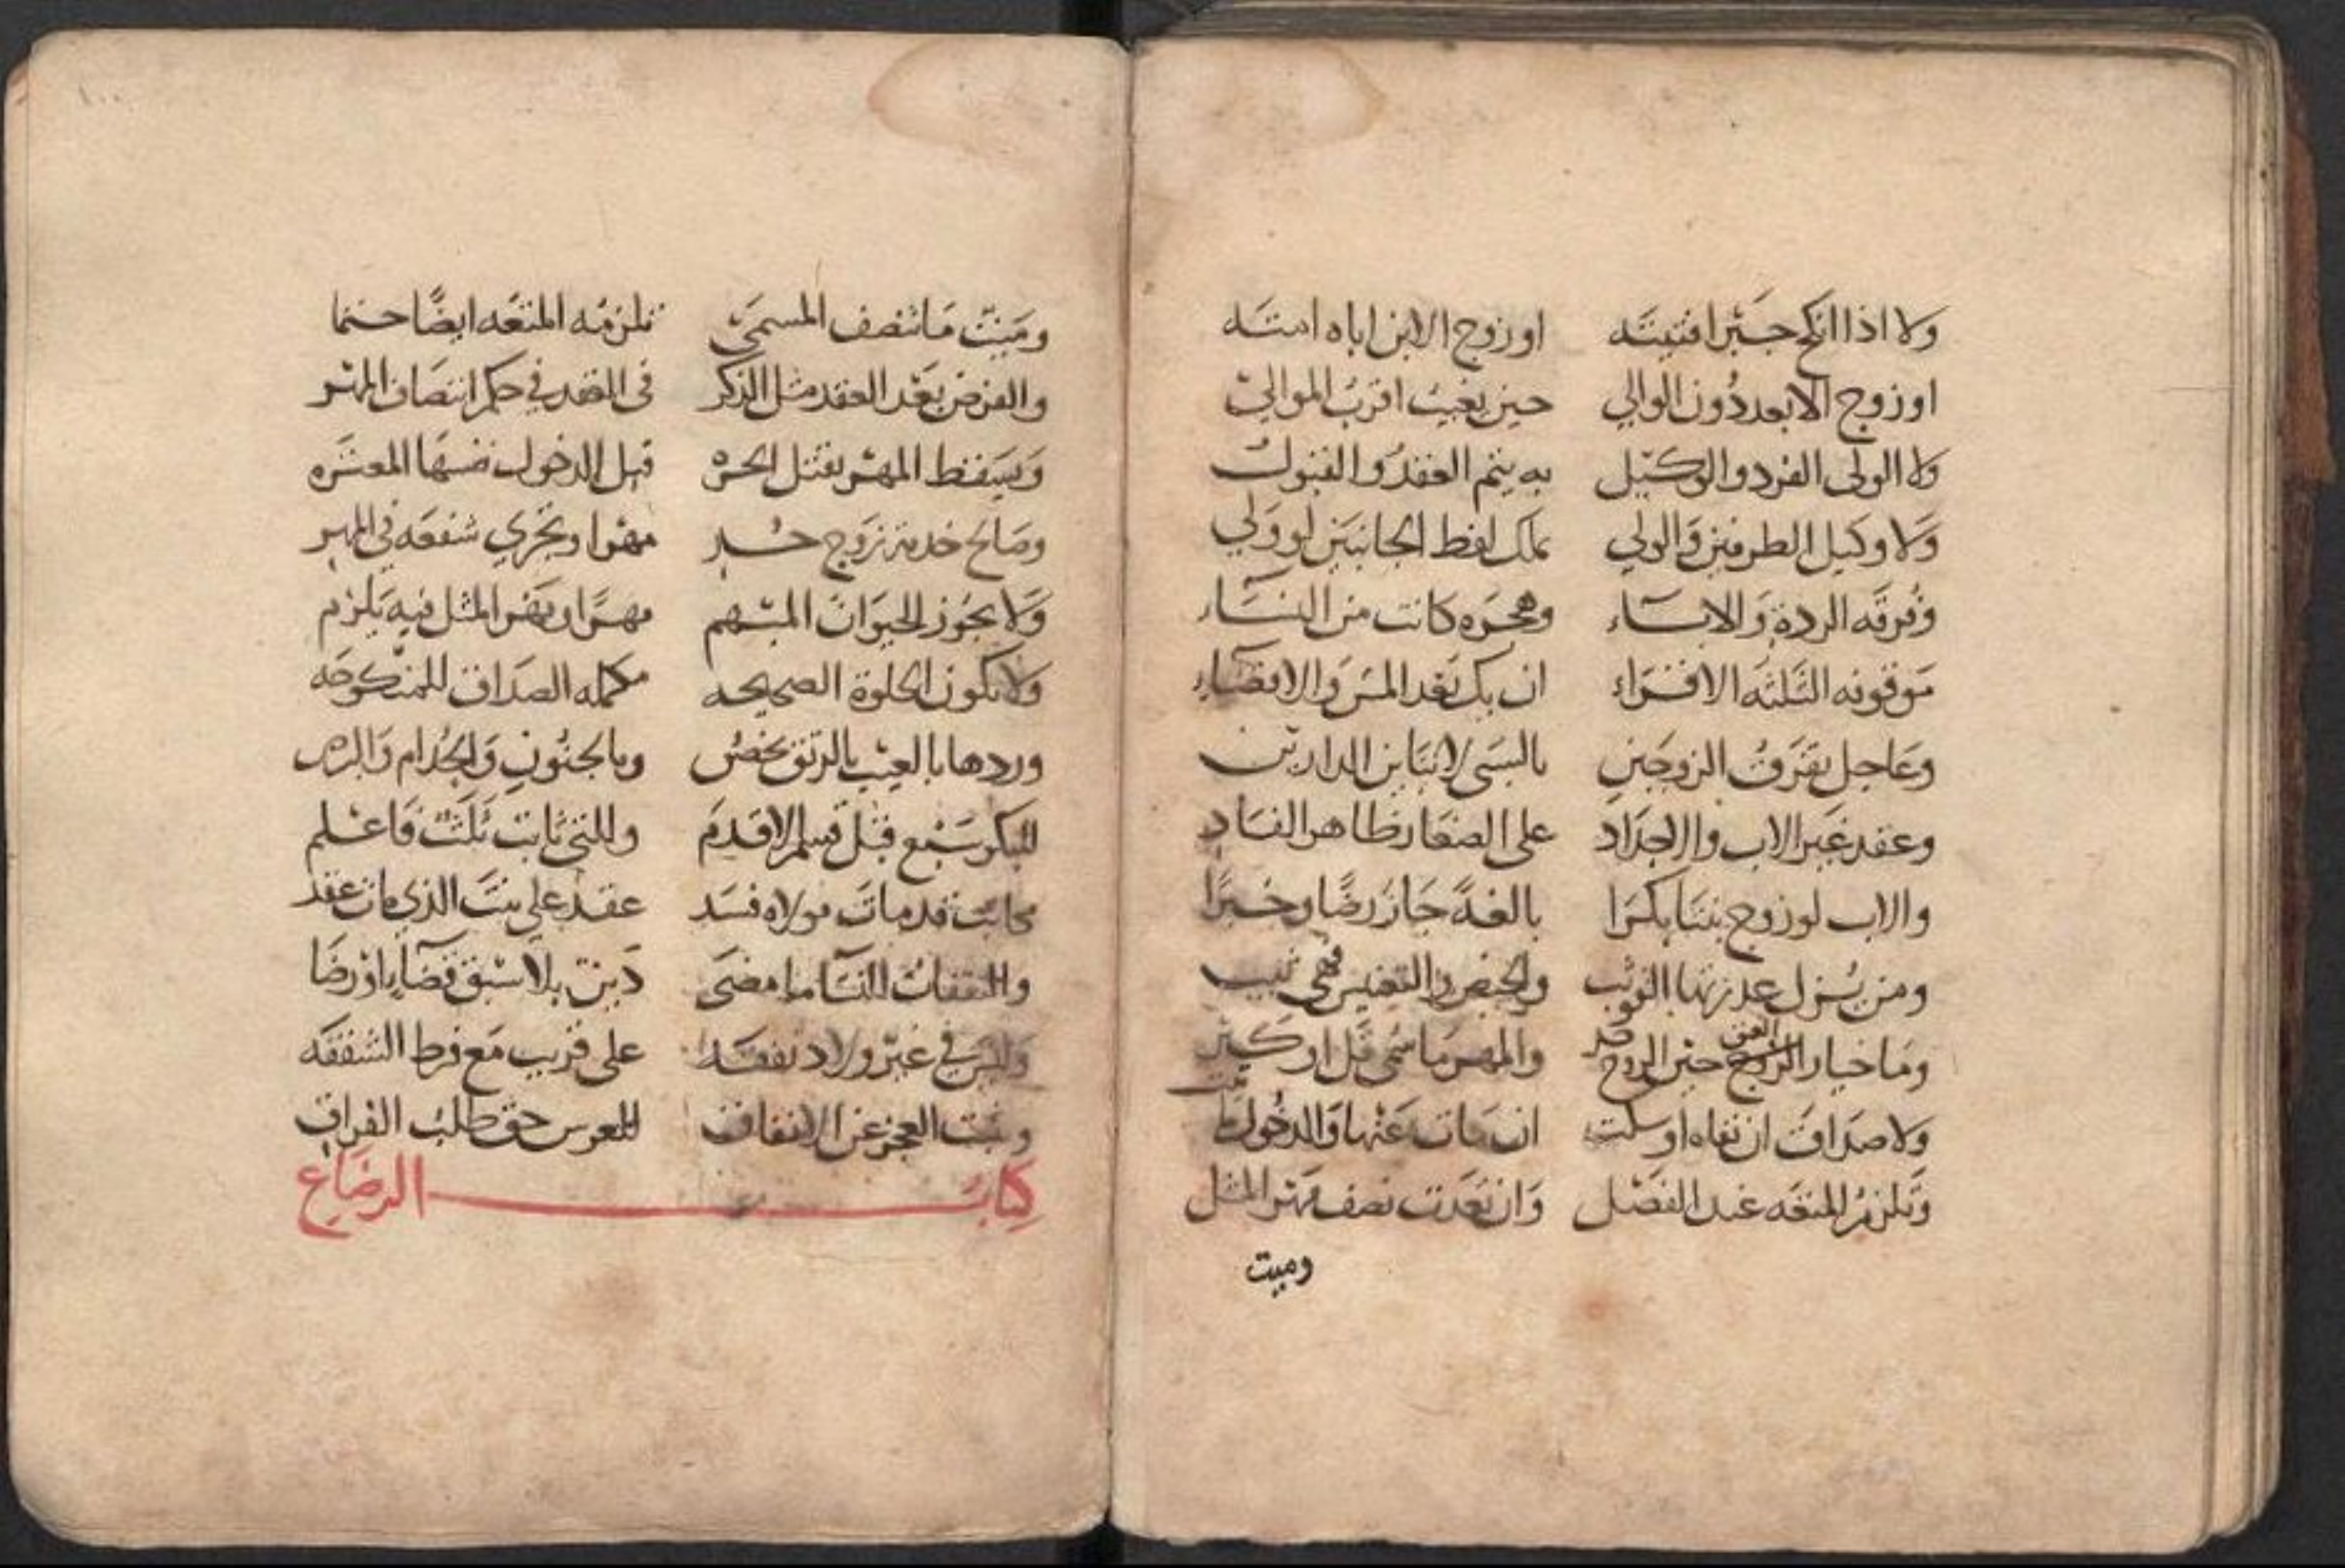 ولا اذا انكح جبرا فتيته او زوج الابن اباه امته
او زوج الابعد دون الوالي حين يغيب اقرب الموالي
ولا الولي الفرد والوكيل به يتم العقد والقبول
ولا وكيل الطرفين والولي يملك لفظ الجانبين لو ولي
وفرقه الردة والاباء وهجره كانت من النساء
موقوفه الثلثه الاقراء ان يك بعد المس والافضاء
وعاجل تفرق الزوجين بالسبي لا تباين الدارين
وعقد غير الاب والاجداد على الصغار ظاهر الفساد
والاب لو زوج بنتا بكرا بالغة جاز رضا وخبرا
ومن يزل عذرتها الوثب والحيض والتعنيس فهي ثيب
وما خيار حين الزوج والمهر ما سمي قل او كثر
ولا صداق ان نفاه او سكت ان مات عنها والدخول ما ثبت
وتلزم المتعه عند الفصل وان تعدت نصف مهر المثل
وميت
١٠٠
وميت ما تنصف المسمى تلزمه المتعه ايضا حتما
والفرض بعد العقد مثل الذكر في العقد في حكم انتصاف المهر
ويسقط المهر بقتل الحره قبل الدخول نفسها المعتره
وصالح خدمة زوج حر مهرا وتجري شفعه في المهر
ولا يجوز الحيوان المبهم مهرا ومهر المثل فيه يلزم
ولا تكون الخلوة الصحيحه مكمله الصداق للمنكوحه
وردها بالعيب بالرتق يخص وبالجنون والجذام والبرص
للبكر سبع قبل قسم الاقدم وللتي ثابت ثلث فاعلم
مكاتب قد مات مولاه فسد عقد على بنت الذي مات عقد
والنفقات للنسا ما مضى دين بلا سبق قضاء او رضا
وليس في غير ولاد نفقه على قريب مع فرط الشفقه
ويثبت العجز عن الانفاق للعرس حق طلب الفراق
كتاب الرضاع